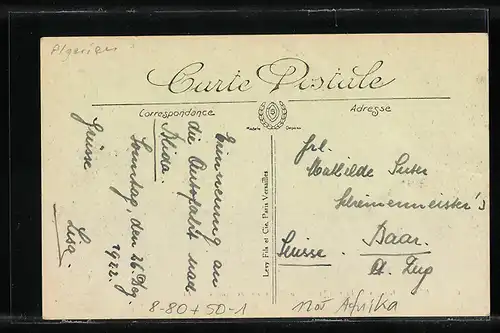 Algerien
Carte Postale
Correspondance
Adresse
Marque Déposée
Levy Fils et Cie, Paris Versailles
Erinnerung an
die Autofahrt nach
Blida.
Sonntag, den 26. Dez.
1922.
Grüsse
Lisa.
Frl.
Mathilde Suter
Schreinermeister's
Baar.
Suisse.
Kt. Zug
8-80+50-1
Nor Afrika